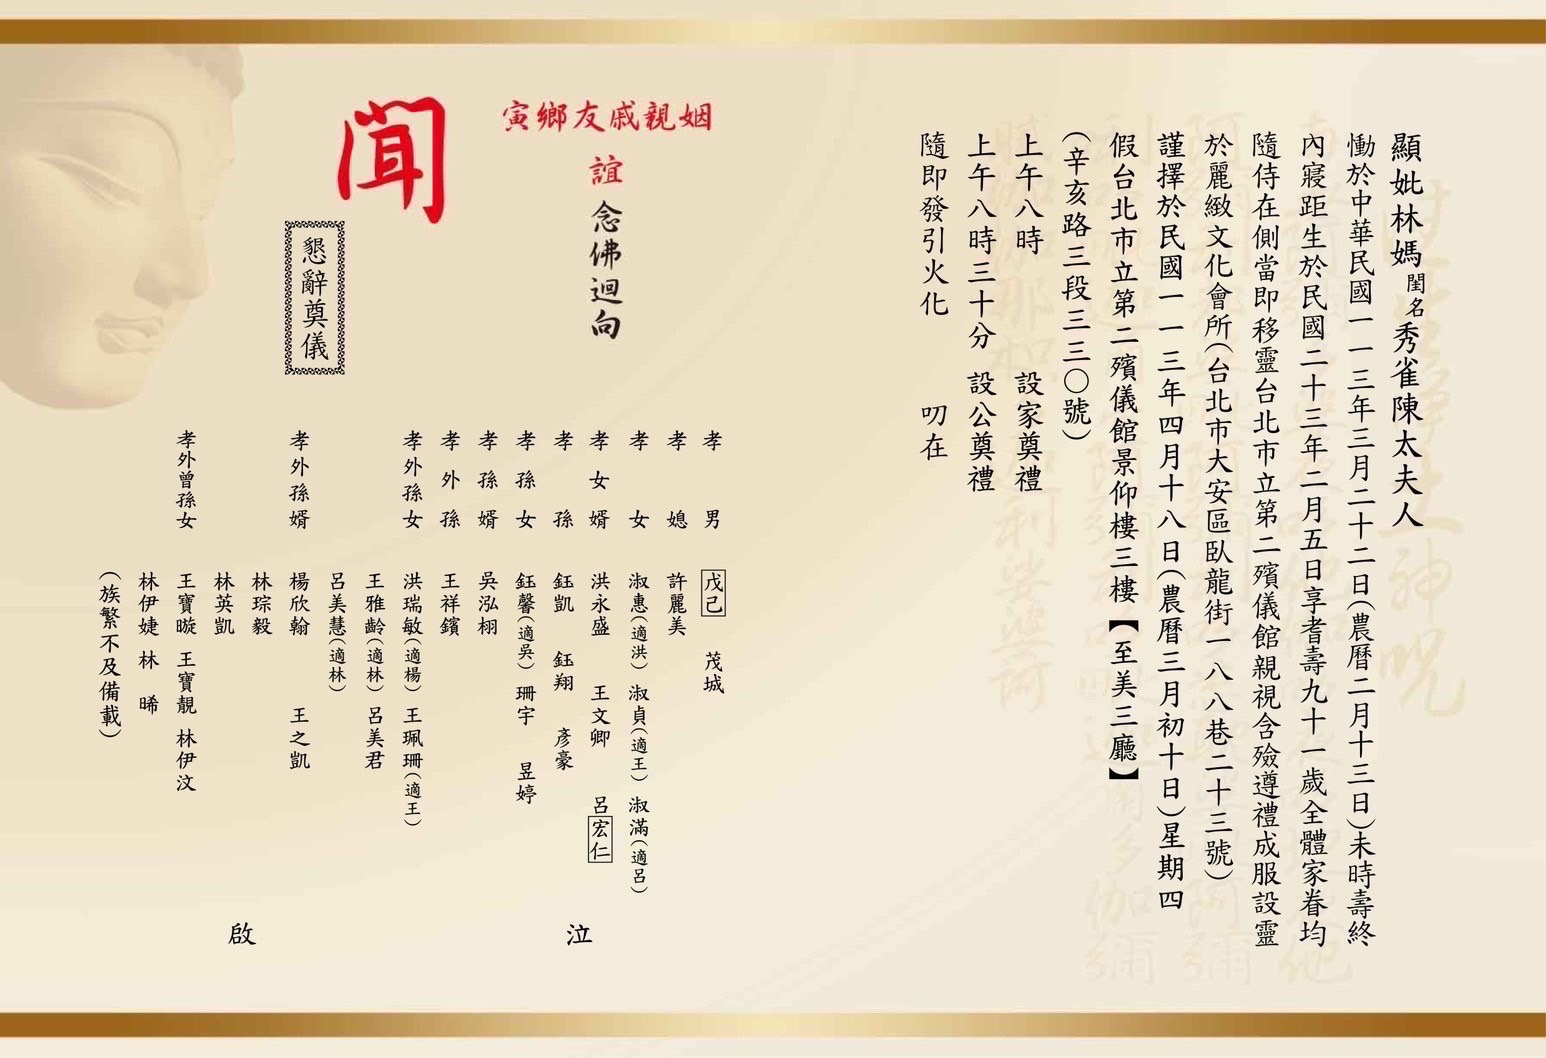 顯妣林媽閨名秀雀陳太夫人
慟於中華民國一一三年三月二十二日(農曆二月十三日)未時壽終
內寢距生於民國二十三年二月五日享耆壽九十一歲全體家眷均
隨侍在側當即移靈台北市立第二殯儀館親視含殮遵禮成服設靈
於麗緻文化會所(台北市大安區臥龍街一八八巷二十三號)
謹擇於民國一一三年四月十八日(農曆三月初十日)星期四
假台北市立第二殯儀館景仰樓三樓【至美三廳】
(辛亥路三段三三〇號)
上午八時 設家奠禮
上午八時三十分 設公奠禮
隨即發引火化 叨在
姻親戚友鄉寅
誼 念佛迴向
聞
懇辭奠儀
孝男 戊己 茂城
孝媳 許麗美
孝女 淑惠(適洪) 淑貞(適王) 淑滿(適呂)
孝女婿 洪永盛 王文卿 呂宏仁
孝孫 鈺凱 鈺翔 彥豪
孝孫女 鈺馨(適吳) 珊宇 昱婷
孝孫婿 吳泓栩
孝外孫 王祥鑌
孝外孫女 洪瑞敏(適楊) 王珮珊(適王)
王雅齡(適林) 呂美君
呂美慧(適林)
孝外孫婿 楊欣翰 王之凱
林琮毅
林英凱
孝外曾孫女 王寶暶 王寶靚 林伊汶
林伊婕 林晞
(族繁不及備載)
泣 啟